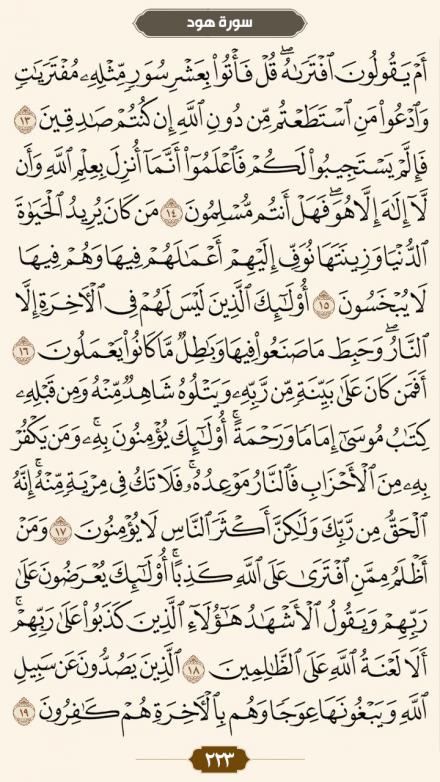 سورة هود
أَمْ يَقُولُونَ ٱفْتَرَىٰهُ ۖ قُلْ فَأْتُوا۟ بِعَشْرِ سُوَرٍ مِّثْلِهِۦ مُفْتَرَيَٰتٍ
وَٱدْعُوا۟ مَنِ ٱسْتَطَعْتُم مِّن دُونِ ٱللَّهِ إِن كُنتُمْ صَٰدِقِينَ ١٣
فَإِلَّمْ يَسْتَجِيبُوا۟ لَكُمْ فَٱعْلَمُوٓا۟ أَنَّمَآ أُنزِلَ بِعِلْمِ ٱللَّهِ وَأَن
لَّآ إِلَٰهَ إِلَّا هُوَ ۖ فَهَلْ أَنتُم مُّسْلِمُونَ ١٤ مَن كَانَ يُرِيدُ ٱلْحَيَوٰةَ
ٱلدُّنْيَا وَزِينَتَهَا نُوَفِّ إِلَيْهِمْ أَعْمَٰلَهُمْ فِيهَا وَهُمْ فِيهَا
لَا يُبْخَسُونَ ١٥ أُو۟لَٰٓئِكَ ٱلَّذِينَ لَيْسَ لَهُمْ فِى ٱلْءَاخِرَةِ إِلَّا
ٱلنَّارُ ۖ وَحَبِطَ مَا صَنَعُوا۟ فِيهَا وَبَٰطِلٌ مَّا كَانُوا۟ يَعْمَلُونَ ١٦
أَفَمَن كَانَ عَلَىٰ بَيِّنَةٍ مِّن رَّبِّهِۦ وَيَتْلُوهُ شَاهِدٌ مِّنْهُ وَمِن قَبْلِهِۦ
كِتَٰبُ مُوسَىٰٓ إِمَامًا وَرَحْمَةً ۚ أُو۟لَٰٓئِكَ يُؤْمِنُونَ بِهِۦ ۚ وَمَن يَكْفُرْ
بِهِۦ مِنَ ٱلْأَحْزَابِ فَٱلنَّارُ مَوْعِدُهُۥ ۚ فَلَا تَكُ فِى مِرْيَةٍ مِّنْهُ ۚ إِنَّهُ
ٱلْحَقُّ مِن رَّبِّكَ وَلَٰكِنَّ أَكْثَرَ ٱلنَّاسِ لَا يُؤْمِنُونَ ١٧ وَمَنْ
أَظْلَمُ مِمَّنِ ٱفْتَرَىٰ عَلَى ٱللَّهِ كَذِبًا ۚ أُو۟لَٰٓئِكَ يُعْرَضُونَ عَلَىٰ
رَبِّهِمْ وَيَقُولُ ٱلْأَشْهَٰدُ هَٰٓؤُلَآءِ ٱلَّذِينَ كَذَبُوا۟ عَلَىٰ رَبِّهِمْ ۚ
أَلَا لَعْنَةُ ٱللَّهِ عَلَى ٱلظَّٰلِمِينَ ١٨ ٱلَّذِينَ يَصُدُّونَ عَن سَبِيلِ
ٱللَّهِ وَيَبْغُونَهَا عِوَجًا وَهُم بِٱلْءَاخِرَةِ هُمْ كَٰفِرُونَ ١٩
٢٢٣